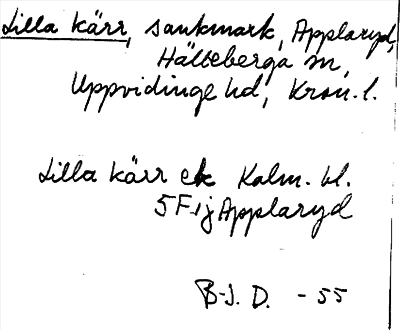 Lilla kärr, sankmark, Applaryd,
Hälleberga sn,
Uppvidinge hd, Kron. l.
Lilla kärr ek Kalm. bl.
5 F ij Applaryd
B-J. D. - 55